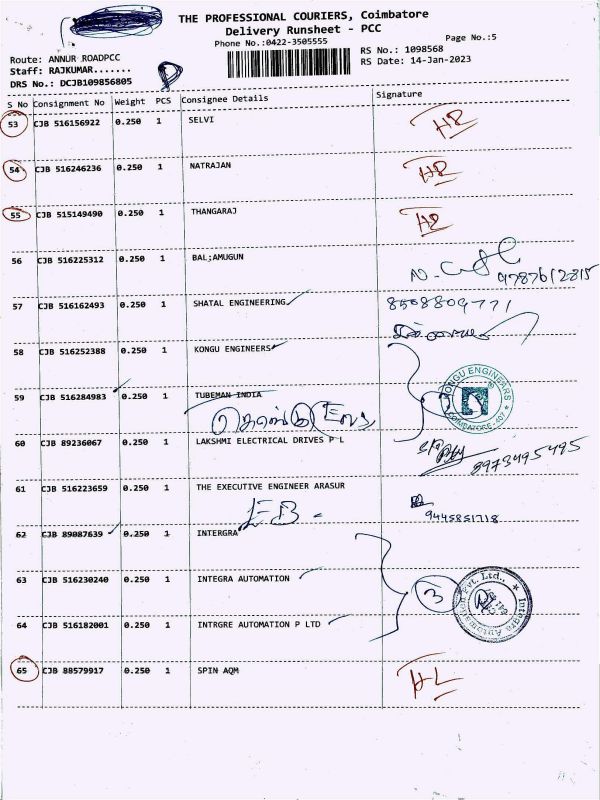 THE PROFESSIONAL COURIERS, Coimbatore
Delivery Runsheet - PCC
Phone No.:0422-3505555
Page No.:5
Route: ANNUR ROADPCC
RS No.: 1098568
Staff: RAJKUMAR.......
RS Date: 14-Jan-2023
DRS No.: DCJB109856805
S No Consignment No Weight PCS Consignee Details Signature
53 CJB 516156922 0.250 1 SELVI
54 CJB 516246236 0.250 1 NATRAJAN
55 CJB 515149490 0.250 1 THANGARAJ
56 CJB 516225312 0.250 1 BAL;AMUGUN
9787612815
57 CJB 516162493 0.250 1 SHATAL ENGINEERING
8508809771
58 CJB 516252388 0.250 1 KONGU ENGINEERS
59 CJB 516284983 0.250 1 TUBEMAN INDIA
KONGU ENGINEARS
COIMBATORE
60 CJB 89236067 0.250 1 LAKSHMI ELECTRICAL DRIVES P L
8973495495
61 CJB 516223659 0.250 1 THE EXECUTIVE ENGINEER ARASUR
EB
9445851718
62 CJB 89087639 0.250 1 INTERGRA
63 CJB 516230240 0.250 1 INTEGRA AUTOMATION
3
Integra Automation Pvt. Ltd.,
64 CJB 516182001 0.250 1 INTRGRE AUTOMATION P LTD
65 CJB 88579917 0.250 1 SPIN AQM